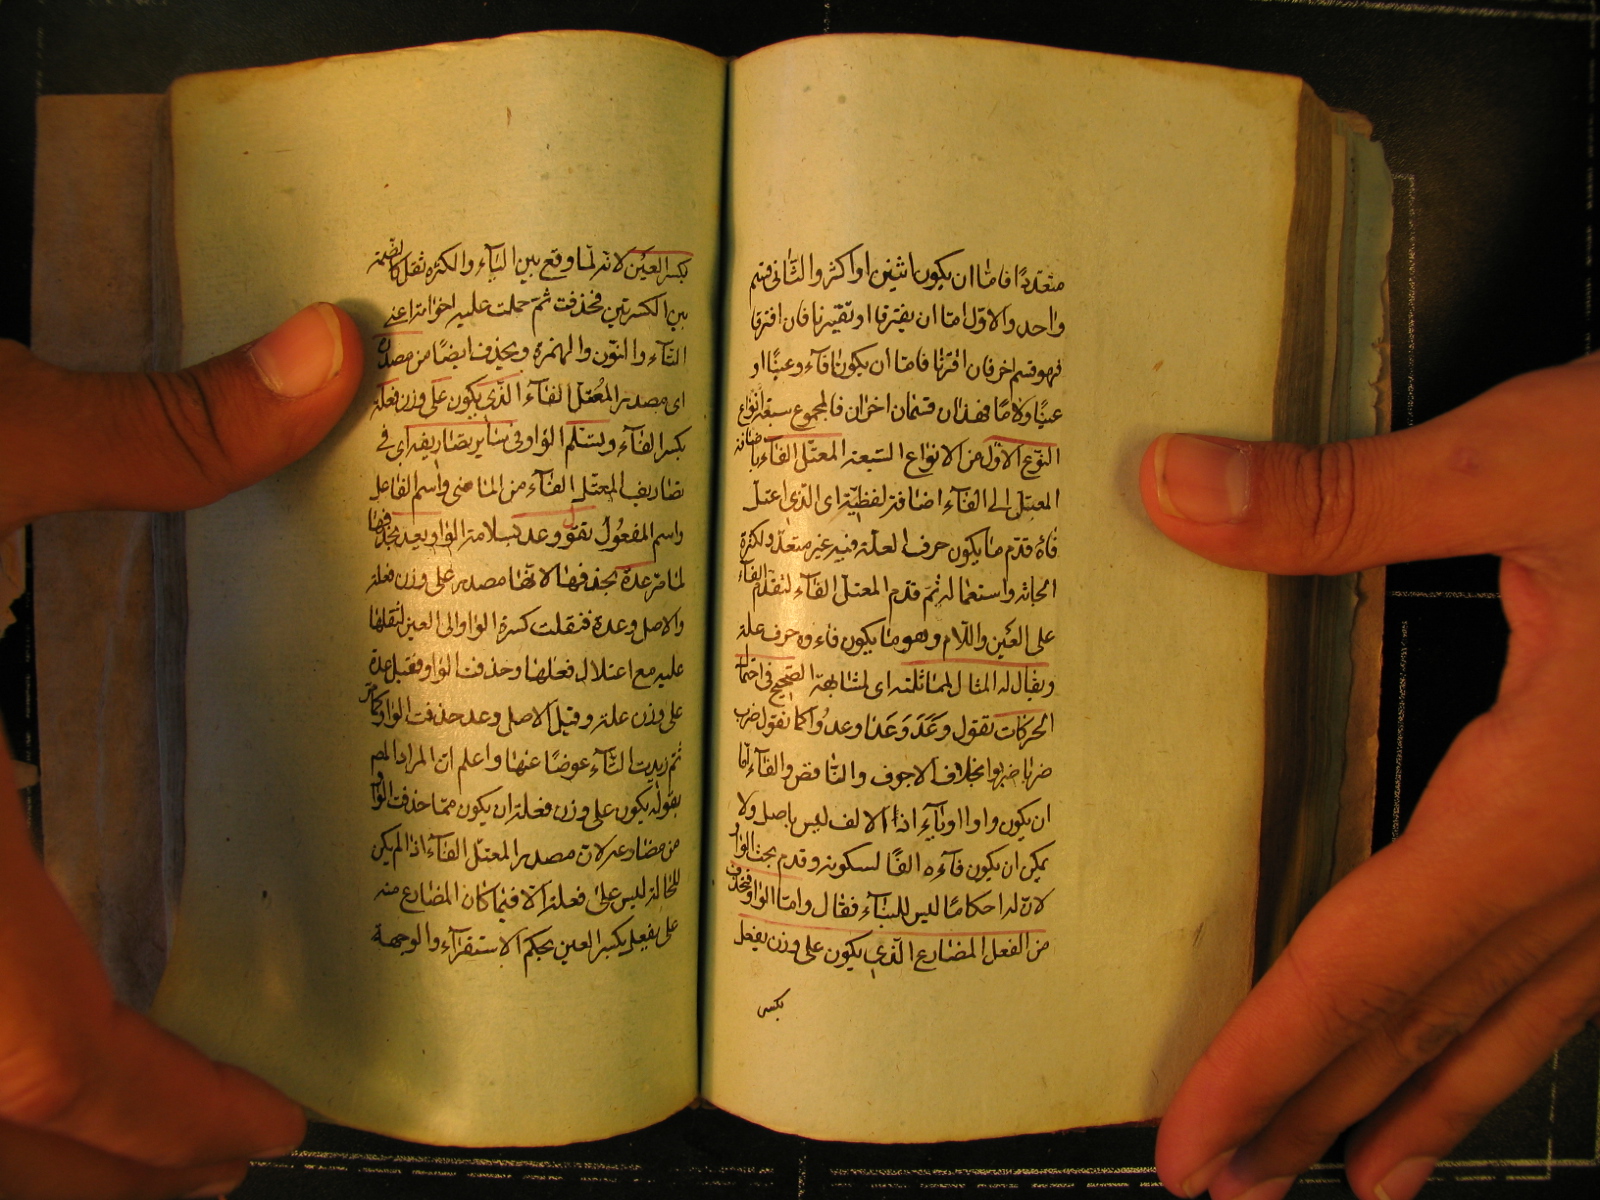 متعددًا فامّا ان يكون اثنين او اكثر والثّانى قسم
واحد والاوّل امّا ان يفترقا او يقترنا فان افترقا
فهو قسم اخر فان اقترنا فامّا ان يكون فاء وعينًا او
عينًا ولامًا فهذان قسمان اخران فالمجموع سبعة انواع
النّوع الاوّل من الانواع السّبعة المعتلّ الفاء باضافة
المعتل الى الفاء اضافة لفظيّة اى الّذى اعتلّ
فاؤه قدّم ما يكون حرف العلّة فيه غير متعدّد لكثرة
ابحاثه واستعماله ثمّ قدّم المعتلّ الفاء لتقدّم الفاء
على العين واللّام وهو ما يكون فاءوه حرف علة
ويقال له المثال لمماثلته اى لمشابهته الصّحيح فى احتمال
الحركات تقول وَعَدَ وَعَدَا وعدُوا كما تقول ضرب
ضربا ضربوا بخلاف الاجوف والنّاقص والفاء امّا
ان يكون واوا او ياء اذ الالف ليس باصل ولا
يمكن ان يكون فاءه الفًا لسكونه وقدم بحث الواو
لانّ له احكامًا ليس للياء فقال وامّا الواو فتحذف
من الفعل المضارع الّذى يكون على وزن يفعل
بكسر
بكسر العين لانه لمّا وقع بين الياء والكسرة ثقل كالضّمة
بين الكسرتين فحذفت ثمّ حملت عليه اخواتها اعنى
التّاء والنّون والهمزة ويحذف ايضًا من مصدره
اى مصدر المُعْتلّ الفاء الّذى يكون على وزن فعلة
بكسر الفاء وتسلم الواو فى سائر تصاريفه اى فى
تصاريف المعتلّ الفاء من الماضى واسم الفاعل
واسم المفعُول تقول وعد بسلامة الواو يعد بحذفها
لما مرّ عدة بحذفها لانّها مصدر على وزن فعلة
والاصل وعدة فنقلت كسرة الواو الى العين لثقلها
عليه مع اعتلال فعلها وحذفت الواو فقيل عدة
على وزن علة وقيل الاصل وعد حذفت الواو كما مرّ
ثمّ زيدت التّاء عوضًا عنها واعلم انّ المراد المص
بقوله يكون على وزن فعلة ان يكون ممّا حذفت الواو
من مضارعه لانّ مصدر المعتلّ الفاء اذا لم يكن
للحالة ليس على فعلة الّا فيما كان المضارع منه
على يفعل بكسر العين بحكم الاستقراء والوجهة